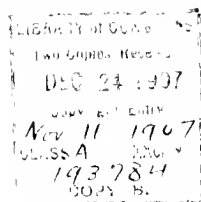 LIBRARY of CONG
Two Copies Receiv
DEC 24 1907
Copy    Entry
Nov 11 1907
CLASS A
193784
COPY B.